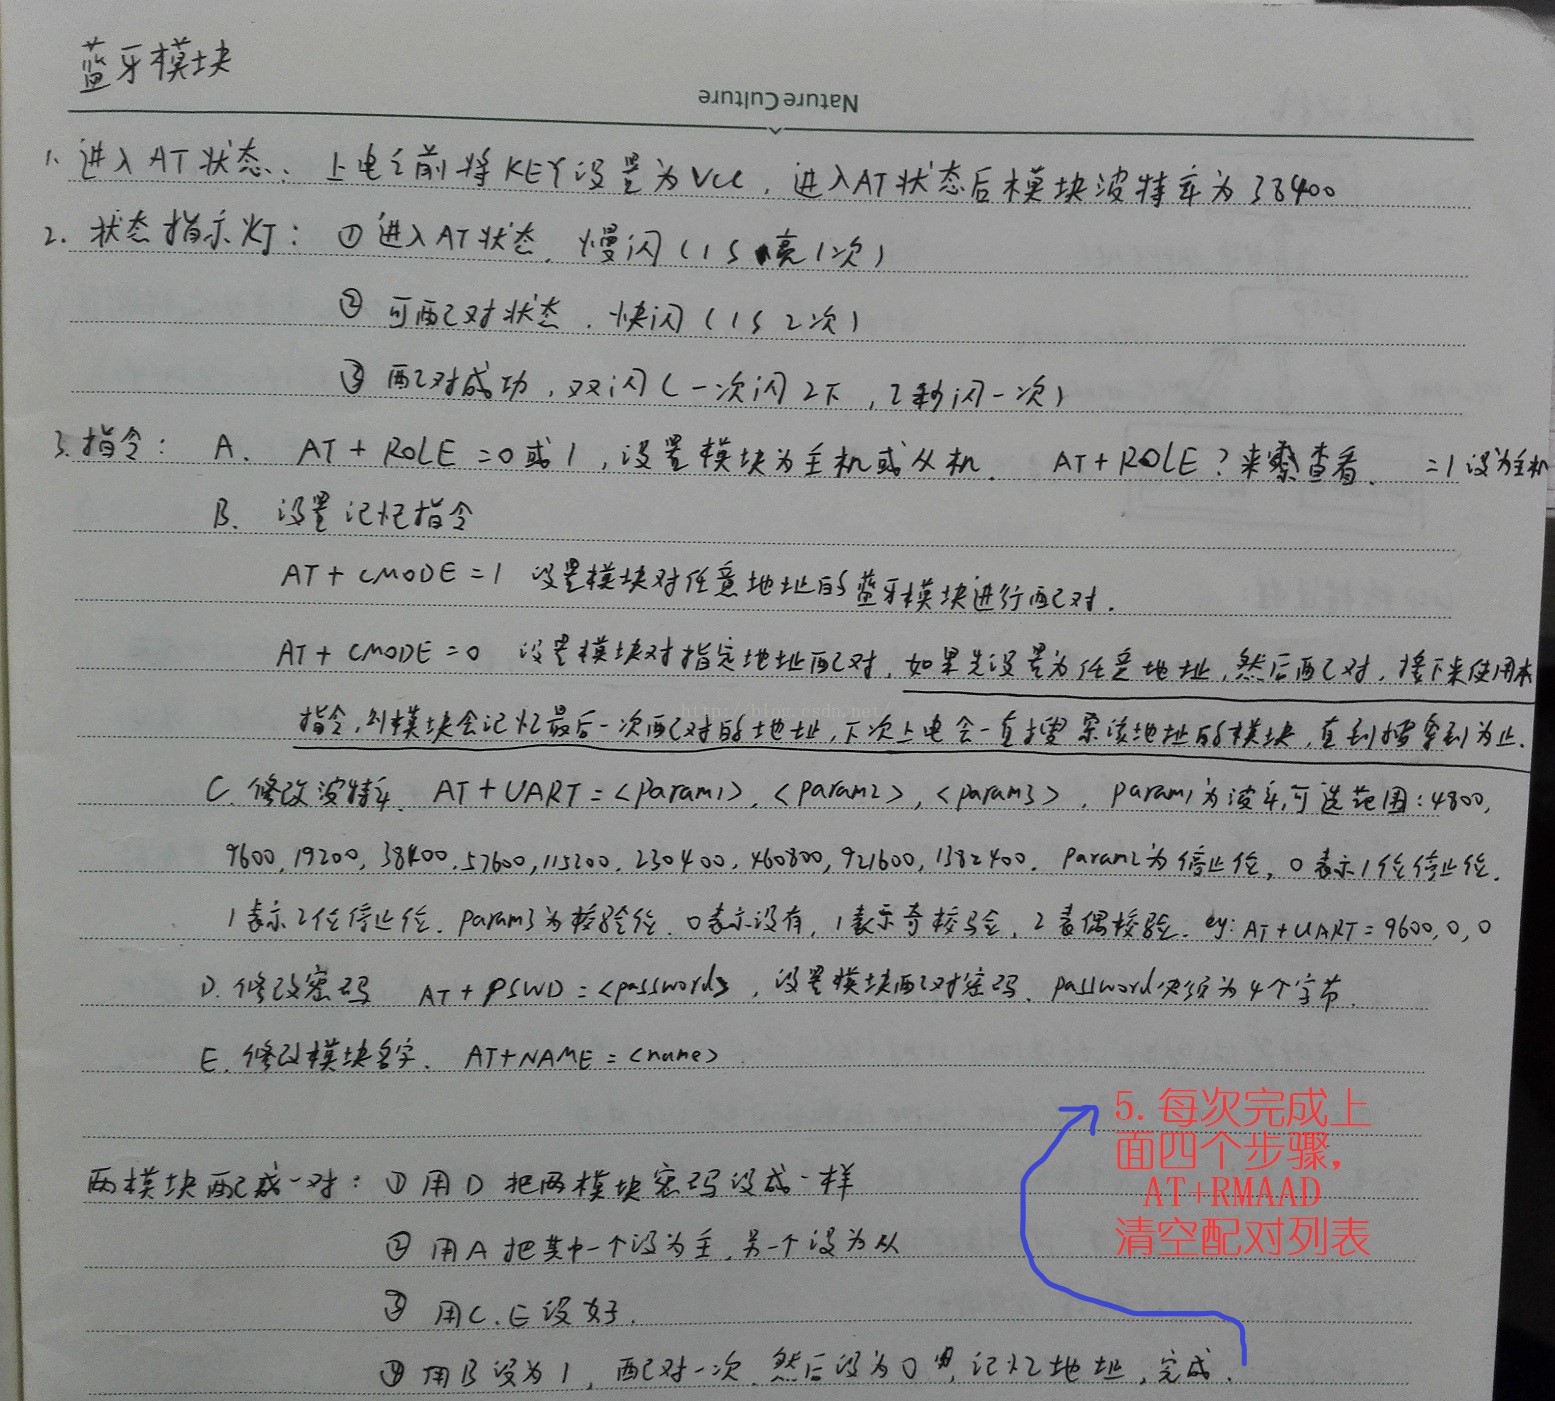 蓝牙模块
Nature Culture
1. 进入AT状态: 上电之前将KEY设置为Vcc, 进入AT状态后模块波特率为38400
2. 状态指示灯: ① 进入AT状态, 慢闪(1S 亮1次)
② 可配对状态, 快闪(1S 2次)
③ 配对成功, 双闪(一次闪2下, 2秒闪一次)
3. 指令: A. AT+ROLE=0或1, 设置模块为主机或从机. AT+ROLE? 来查看. =1设为主机
B. 设置记忆指令
AT+CMODE=1 设置模块对任意地址的蓝牙模块进行配对.
AT+CMODE=0 设置模块对指定地址配对, 如果先设置为任意地址, 然后配对, 接下来使用本
指令, 则模块会记忆最后一次配对的地址, 下次上电会一直搜索该地址的模块, 直到搜索到为止.
http://blog.csdn.net/
C. 修改波特率. AT+UART=<Param1>, <param2>, <param3>, param1为波率,可选范围: 4800,
9600, 19200, 38400, 57600, 115200, 230400, 460800, 921600, 1382400. param2为停止位, 0表示1位停止位.
1表示2位停止位. param3为校验位. 0表示没有, 1表示奇校验, 2表偶校验. eg: AT+UART=9600,0,0
D. 修改密码 AT+PSWD=<password>, 设置模块配对密码. password必须为4个字节.
E. 修改模块名字. AT+NAME=<name>
两模块配成一对: ① 用D把两模块密码设成一样
② 用A把其中一个设为主, 另一个设为从
③ 用C.E设好.
④ 用B设为1, 配对一次, 然后设为0, 记忆地址, 完成.
5. 每次完成上
面四个步骤,
AT+RMAAD
清空配对列表